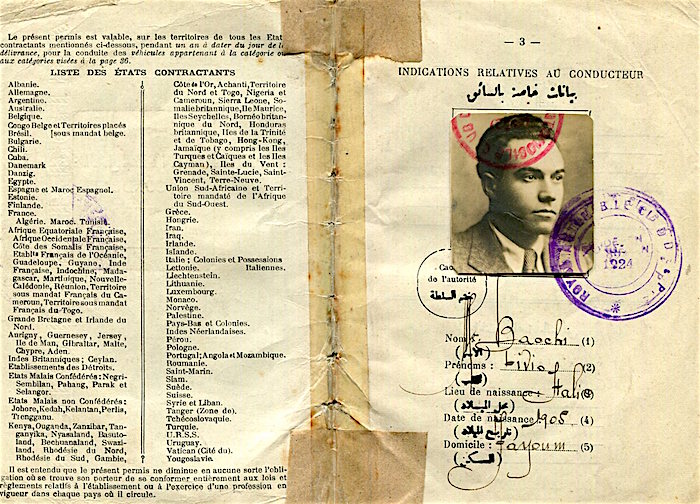 Le présent permis est valable, sur les territoires de tous les Etats
contractants mentionnés ci-dessous, pendant un an à dater du jour de la
délivrance, pour la conduite des véhicules appartenant à la catégorie ou
aux catégories visées à la page 36.
LISTE DES ÉTATS CONTRACTANTS
Albanie.
Allemagne.
Argentine.
Australie.
Belgique.
Congo Belge et Territoires placés
Brésil. [sous mandat belge.
Bulgarie.
Chili.
Cuba.
Danemark
Danzig.
Egypte.
Espagne et Maroc Espagnol.
Estonie.
Finlande.
France.
Algérie. Maroc. Tunisie.
Afrique Equatoriale Française,
Afrique Occidentale Française,
Côte des Somalis Française,
Etablts Français de l'Océanie,
Guadeloupe, Guyane, Inde
Française, Indochine, Mada-
gascar, Martinique, Nouvelle-
Calédonie, Réunion, Territoire
sous mandat Français du Ca-
meroun, Territoire sous mandat
Français du Togo.
Grande Bretagne et Irlande du
Nord.
Aurigny, Guernesey, Jersey,
Ile de Man, Gibraltar, Malte
Chypre, Aden.
Indes Britanniques; Ceylan.
Etablissements des Détroits.
Etats Malais Confédérés: Negri-
Sembilan, Pahang, Parak et
Selangor.
Etats Malais non Confédérés:
Johore, Kedah, Kelantan, Perlis,
Trengganu.
Kenya, Ouganda, Zanzibar, Tan-
ganyika, Nyasaland, Basuto-
land, Bechuanaland, Swazi-
land. Rhodésie du Nord,
Rhodésie du Sud, Gambie,
Côte de l'Or, Achanti, Territoire
du Nord et Togo, Nigeria et
Cameroun, Sierra Leone, So-
malie britannique, Ile Maurice,
Iles Seychelles, Bornéo britan-
nique du Nord, Honduras
britannique, Iles de la Trinité
et de Tobago, Hong-Kong,
Jamaïque (y compris les Iles
Turques et Caïques et les Iles
Cayman), Iles du Vent:
Grenade, Sainte-Lucie, Saint-
Vincent, Terre-Neuve.
Union Sud-Africaine et Terri-
toire mandaté de l'Afrique
du Sud-Ouest.
Grèce.
Hongrie.
Iran.
Iraq.
Irlande.
Islande.
Italie; Colonies et Possessions
Lettonie. Italiennes.
Liechtenstein.
Lithuanie.
Luxembourg.
Monaco.
Norvège.
Palestine.
Pays-Bas et Colonies.
Indes Néerlandaises.
Pérou.
Pologne.
Portugal; Angola et Mozambique.
Roumanie.
Saint-Marin.
Siam.
Suède.
Suisse.
Syrie et Liban.
Tanger (Zone de).
Tchécoslovaquie.
Turquie.
U.R.S.S.
Uruguay.
Vatican (Cité du).
Yougoslavie.
Il est entendu que le présent permis ne diminue en aucune sorte l'obli-
gation où se trouve son porteur de se conformer entièrement aux lois et
règlements relatifs à l'établissement ou à l'exercice d'une profession en
vigueur dans chaque pays où il circule.
— 3 —
INDICATIONS RELATIVES AU CONDUCTEUR
بيانات خاصة بالسائق
1924
de l'autorité
ختم السلطة
Nom: Baochi (1)
(الاسم)
Prénoms: Livio (2)
(اللقب)
Lieu de naissance: Italie (3)
(محل الميلاد)
Date de naissance 1905 (4)
(تاريخ الميلاد)
Domicile: Fayoum (5)
(المسكن)